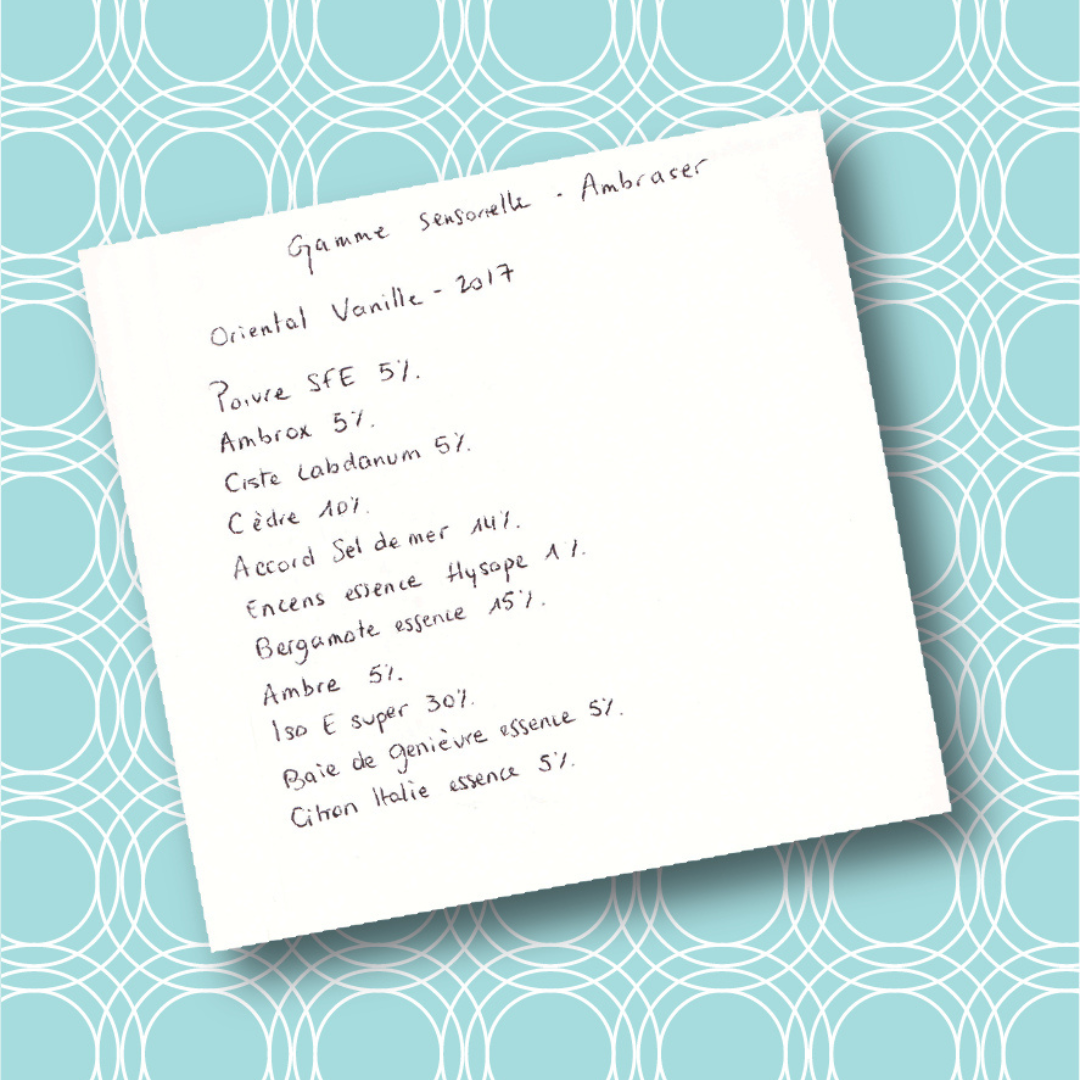 Gamme Sensorielle - Ambraser
Oriental Vanille - 2017
Poivre SFE 5%.
Ambrox 5%.
Ciste Labdanum 5%.
Cèdre 10%.
Accord Sel de mer 14%.
Encens essence Hysope 1%.
Bergamote essence 15%.
Ambre 5%.
Iso E super 30%.
Baie de genièvre essence 5%.
Citron Italie essence 5%.